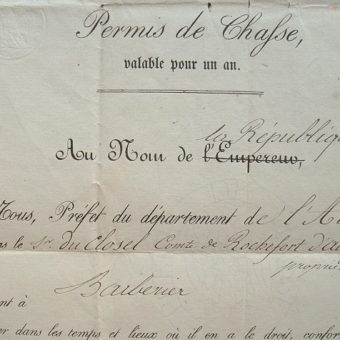 Permis de Chasse,
valable pour un an.
la République
Au Nom de l'Empereur,
Nous, Préfet du département de l'A
le Sr. du Closel Comte de Rochefort d'a
propri
Barberier
nt à
er dans les temps et lieux où il en a le droit, confor